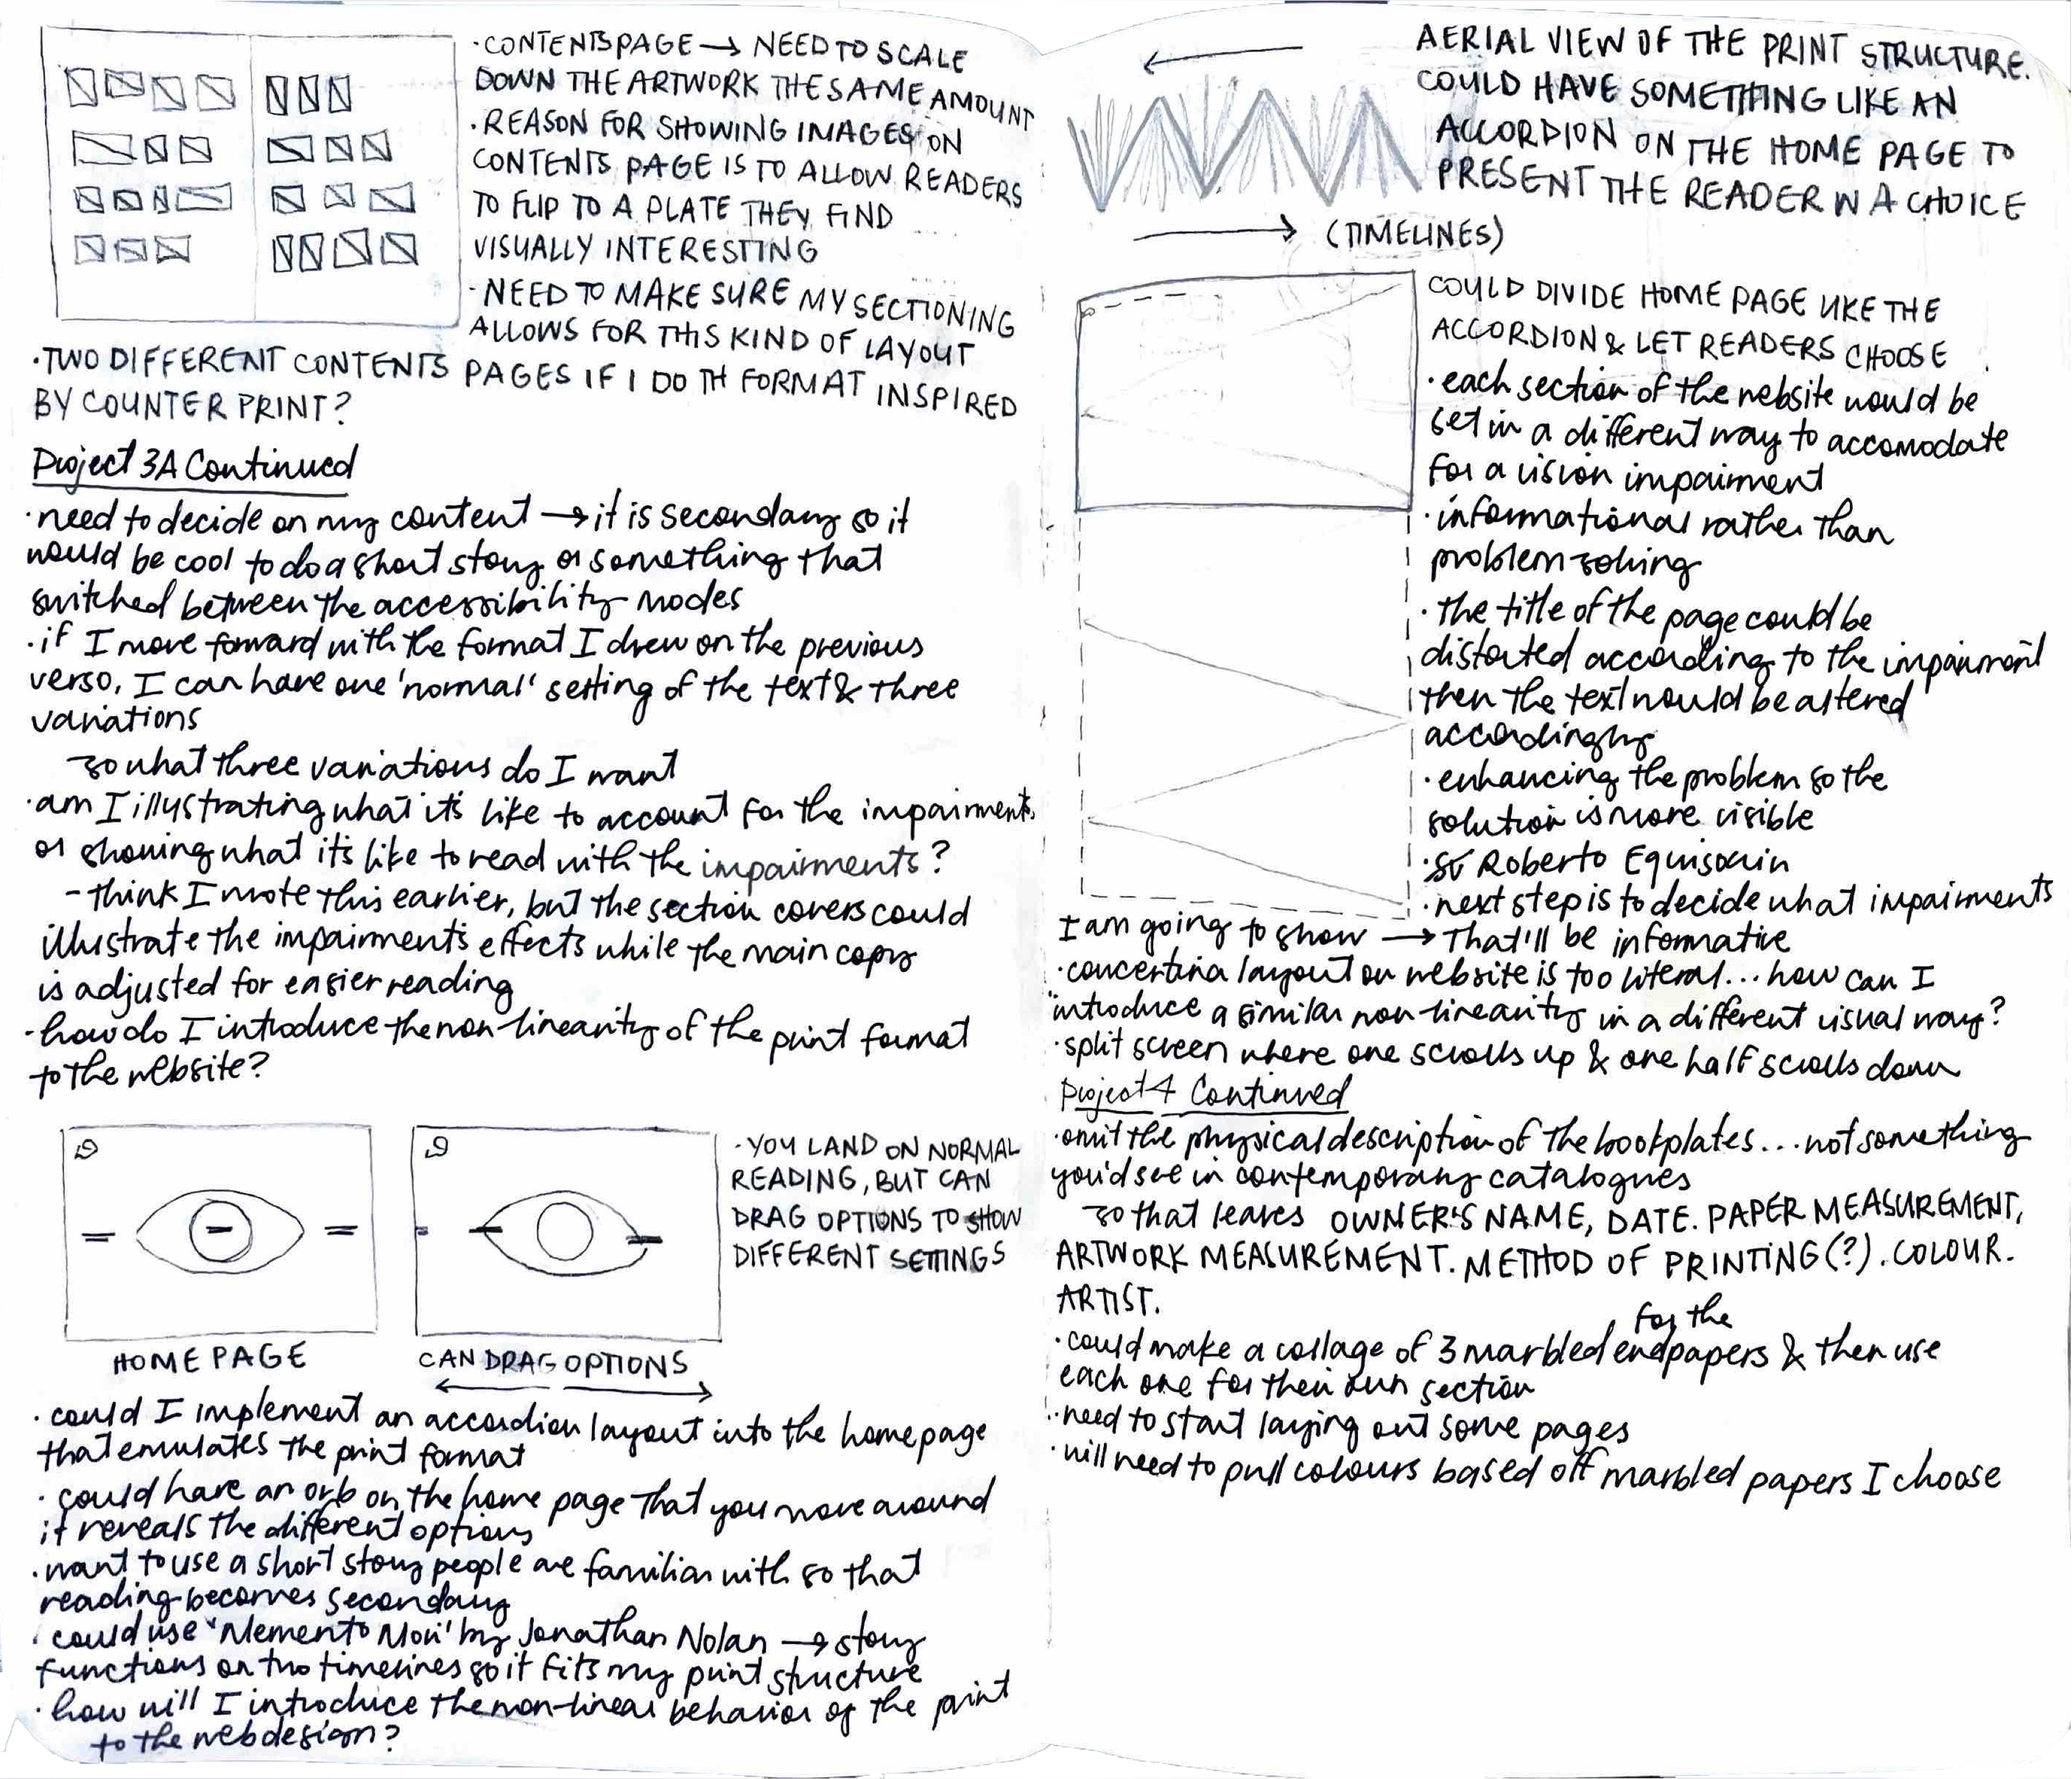 ·CONTENTS PAGE → NEED TO SCALE
DOWN THE ARTWORK THE SAME AMOUNT
·REASON FOR SHOWING IMAGES ON
CONTENTS PAGE IS TO ALLOW READERS
TO FLIP TO A PLATE THEY FIND
VISUALLY INTERESTING
·NEED TO MAKE SURE MY SECTIONING
ALLOWS FOR THIS KIND OF LAYOUT
·TWO DIFFERENT CONTENTS PAGES IF I DO TH FORMAT INSPIRED
BY COUNTER PRINT?
Project 3A Continued
·need to decide on my content → it is secondary so it
would be cool to do a short story or something that
switched between the accessibility modes
·if I move forward with the format I drew on the previous
verso, I can have one 'normal' setting of the text & three
variations
so what three variations do I want
·am I illustrating what it's like to account for the impairments
or showing what it's like to read with the impairments?
- think I wrote this earlier, but the section covers could
illustrate the impairment's effects while the main copy
is adjusted for easier reading
·how do I introduce the non-linearity of the print format
to the website?
·YOU LAND ON NORMAL
READING, BUT CAN
DRAG OPTIONS TO SHOW
DIFFERENT SETTINGS
HOME PAGE
CAN DRAG OPTIONS
·could I implement an accordion layout into the homepage
that emulates the print format
·could have an orb on the home page that you move around
it reveals the different options
·want to use a short story people are familiar with so that
reading becomes secondary
·could use 'Memento Mori' by Jonathan Nolan → story
functions on two timelines so it fits my print structure
·how will I introduce the non-linear behavior of the print
to the web design?
AERIAL VIEW OF THE PRINT STRUCTURE.
COULD HAVE SOMETHING LIKE AN
ACCORDION ON THE HOME PAGE TO
PRESENT THE READER W A CHOICE
(TIMELINES)
COULD DIVIDE HOME PAGE LIKE THE
ACCORDION & LET READERS CHOOSE
·each section of the website would be
set in a different way to accomodate
for a vision impairment
·informational rather than
problem solving
·the title of the page could be
distorted according to the impairment
then the text would be altered
accordingly
·enhancing the problem so the
solution is more visible
Roberto Equisoain
·next step is to decide what impairments
I am going to show → That'll be informative
·concertina layout on website is too literal... how can I
introduce a similar non-linearity in a different visual way?
·split screen where one scrolls up & one half scrolls down
Project 4 Continued
·omit the physical description of the bookplates... not something
you'd see in contemporary catalogues
so that leaves OWNER'S NAME, DATE. PAPER MEASUREMENT,
ARTWORK MEASUREMENT. METHOD OF PRINTING(?). COLOUR.
ARTIST.
for the
·could make a collage of 3 marbled endpapers & then use
each one for their own section
·need to start laying out some pages
·will need to pull colours based off marbled papers I choose